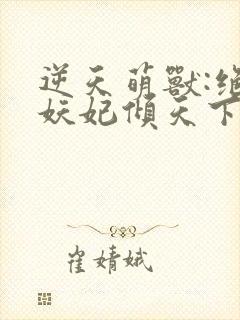 逆天萌獸:絕
妖妃傾天下
崔婧娥